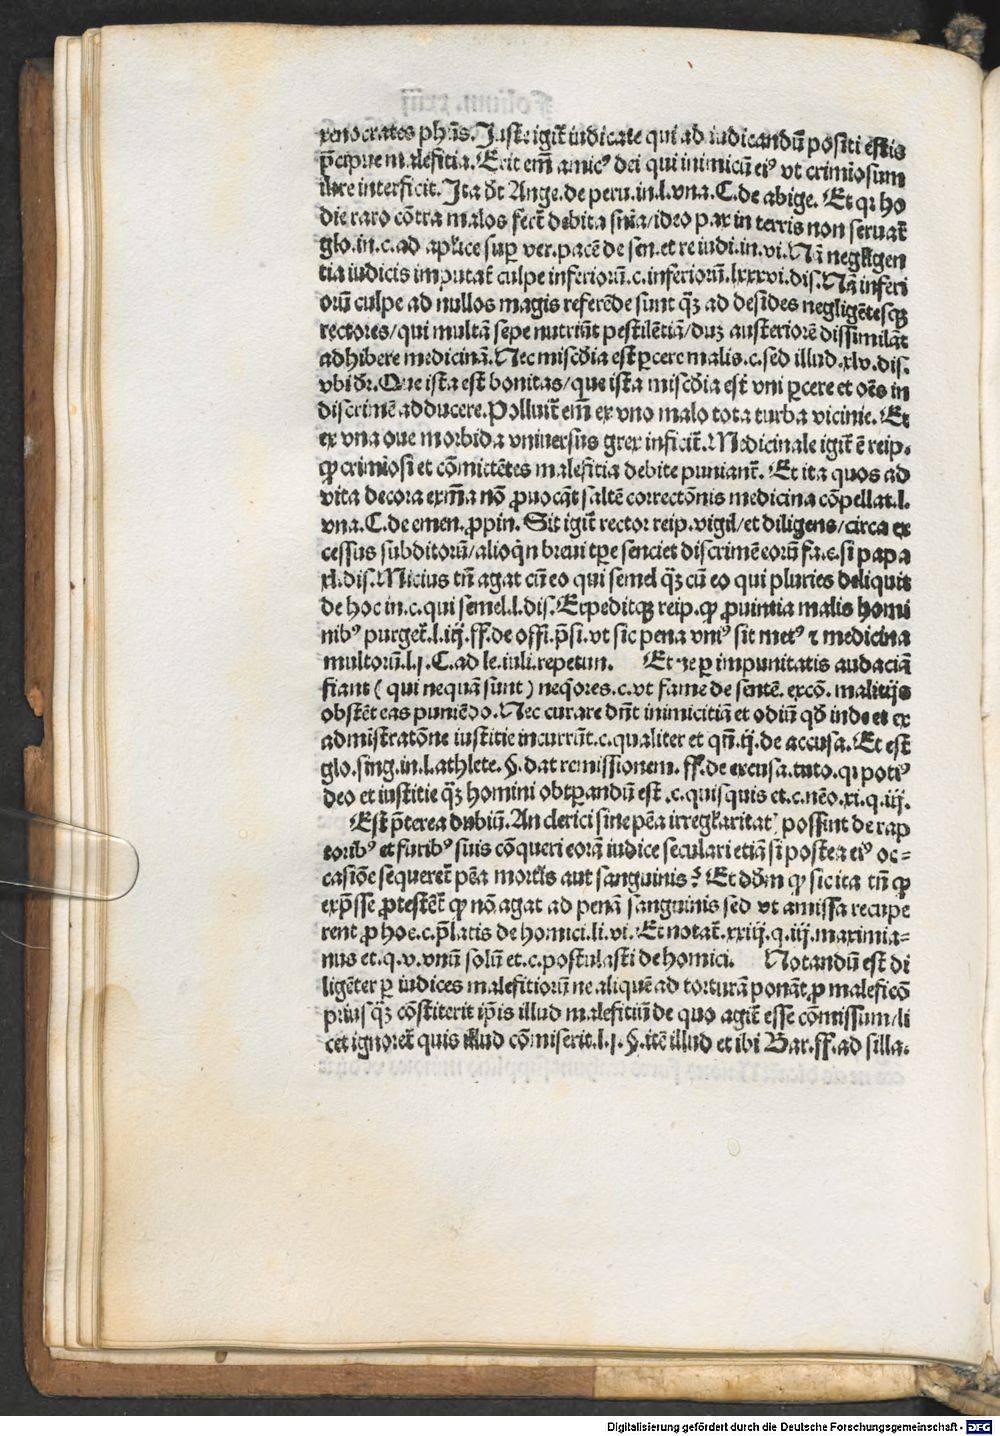 xenocrates phūs. Juste igit̄ iudicate qui ad iudicandū positi estis
p̄cipue malefitia. Erit em̄ amicꝰ dei qui inimicū eiꝰ vt crimiosum
iure interficit. Ita dt̄ Ange. de peru. in. l. vna. C. de abige. Et qꝛ ho
die raro cōtra malos fert̄ debita sn̄ia/ideo pax in terris non seruat̄
glo. in. c. ad aplice sup̄ ver. pacē de sen. et re iudi. in. vi. Nā negligen
tia iudicis imputat̄ culpe inferiorū. c. inferiorū. lxxxvi. dis. Nā inferi
orū culpe ad nullos magis referēde sunt qꝫ ad desides negligētesqꝫ
rectores/qui multā sepe nutriūt pestilētiā/duꝫ austeriorē dissimilāt
adhibere medicinā. Nec misc̄dia est ꝑcere malis. c. sed illud. xlv. dis.
vbi dr̄. Que ista est bonitas/que ista misc̄dia est vni ꝑcere et oēs in
discrimē adducere. Polluit̄ em̄ ex vno malo tota turba vicinie. Et
ex vna oue morbida vniuersus grex inficit̄. Medicinale igit̄ ē reip.
ꝙ crimiosi et cōmictētes malefitia debite puniant̄. Et ita quos ad
vita decora exm̄a nō ꝓuocāt saltē correctōnis medicina cōpellat. l.
vna. C. de emen. ꝓpin. Sit igit̄ rector reip. vigil/et diligens/circa ex
cessus subditorū/alioqͥn breui tp̄e senciet discrimē eorū fa. c. si papa
xl. dis. Micius tn̄ agat cū eo qui semel qꝫ cū eo qui pluries deliquit
de hoc in. c. qui semel. l. dis. Expeditqꝫ reip. ꝙ ꝓuintia malis homi
nibꝰ purget̄. l. iij. ff. de offi. p̄si. vt sic pena vniꝰ sit metꝰ ⁊ medicina
multorū. l. j. C. ad le. iuli. repetun. Et ne ꝑ impunitatis audaciā
fiant ( qui nequā sunt ) neqͦres. c. vt fame de sentē. excō. malitijs
obstēt eas puniēdo. Nec curare dn̄t inimicitiā et odiū qd̄ inde et ex
admistratōne iustitie incurrūt. c. qualiter et qn̄. ij. de accusa. Et est
glo. sing. in. l. athlete. §. dat remissionem. ff. de excusa. tuto. qꝛ potiꝰ
deo et iustitie qꝫ homini obtꝑandū est .c. quisquis et. c. nēo. xi. q. iij.
Est p̄terea dubiū. An clerici sine pēa irregl̄aritat̄ possint de rap
toribꝰ et furibꝰ suis cōqueri corā iudice seculari etiā si postea eiꝰ oc=
casiōe sequeret̄ pēa mortl̄s aut sanguinis? Et dd̄m ꝙ sic ita tn̄ ꝙ
exp̄sse ꝓtestēt̄ ꝙ nō agat ad penā sanguinis sed vt amissa recupe
rent ꝓ hoc. c. p̄latis de homici. li. vi. Et notat̄. xxiij. q. iij. maximia=
nus et. q. v. vnū solū et. c. postulasti de homici. Notandū est di
ligēter ꝑ iudices malefitiorū ne aliquē ad torturā ponāt ꝓ maleficō
priusqꝫ cōstiterit ip̄is illud malefitiū de quo agit̄ esse cōmissum/li
cet ignoret̄ quis illud cōmiserit. l. j. §. itē illud et ibi Bar. ff. ad silla.
Digitalisierung gefördert durch die Deutsche Forschungsgemeinschaft - DFG